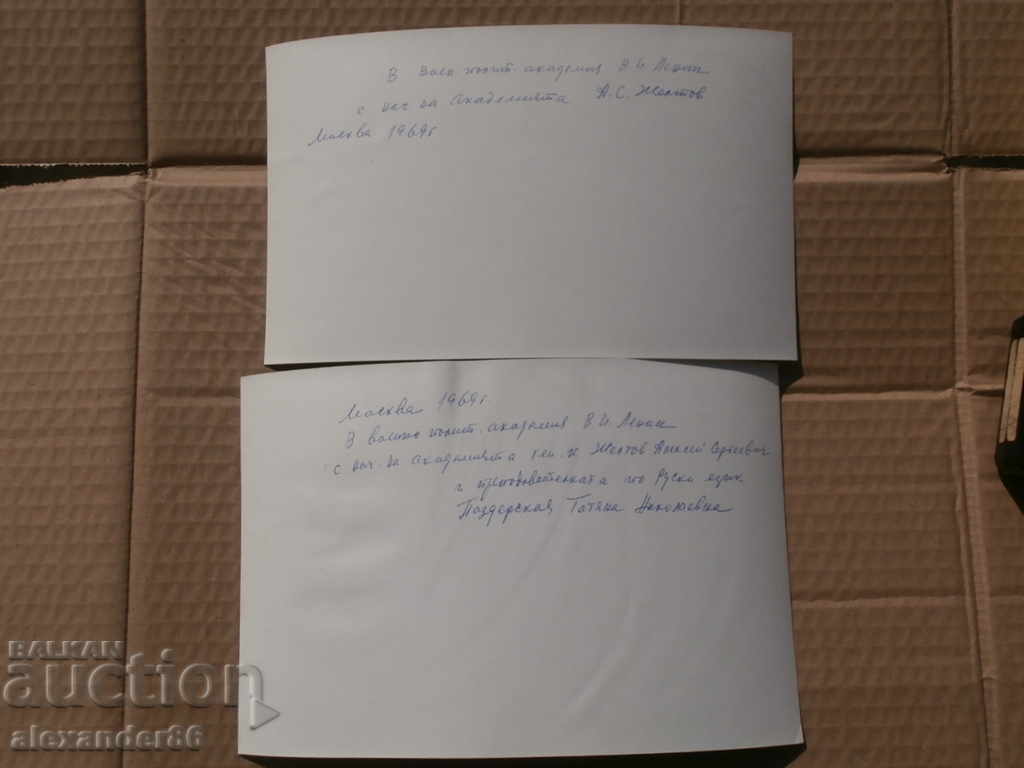 В Воен полит. академия В И Ленин
с нач на Академията А.С. Желтов
Москва 1969г
Москва 1969г
В военно полит. академия В И. Ленин
с нач. на Академията ген. п. Желтов Алексей Сергеевич
и преподавателката по Руски език
Поздерская Татяна Николаевна
BALKAN
auction
alexander86